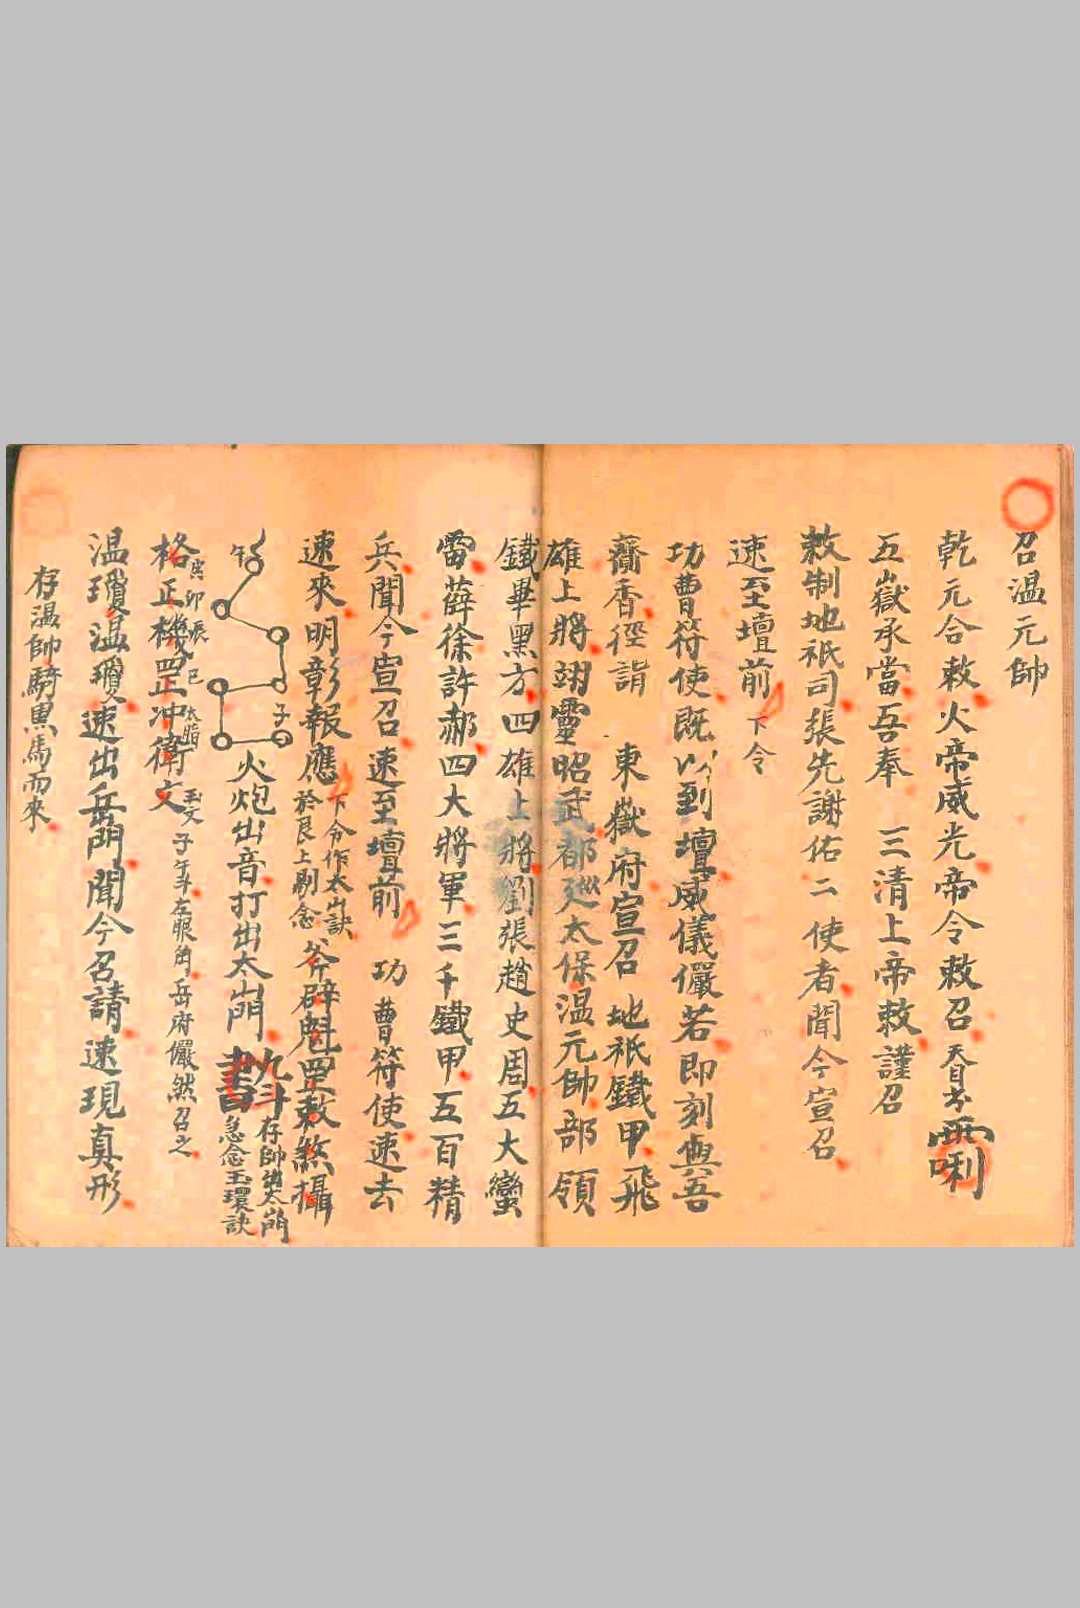 召溫元帥
乾元合敕火帝威光帝令敕召
五嶽承當吾奉 三清上帝敕謹召
敕制地祇司張先謝佑二使者聞今宣召
速至壇前 下令
功曹符使既以到壇威儀儼若即刻與吾
齎香徑詣 東嶽府宣召地祇鐵甲飛
雄上將翊靈昭武都廵太保溫元帥部領
鐵畢黑方四雄上將劉張趙史周五大蠻
雷薛徐許郝四大將軍三千鐵甲五百精
兵聞今宣召速至壇前 功曹符使速去
速來明彰報應
下令作太山訣
於艮上剔念
斧辟魁罡敕煞攝
午
子
火炮出音打出太山門
存帥出太山門
急念玉環訣
寅卯辰巳
格正機罡冲衛文
子午斗左眼
岳府儼然召之
溫瓊溫瓊速出岳門聞今召請速現真形
存溫帥騎黑馬而來